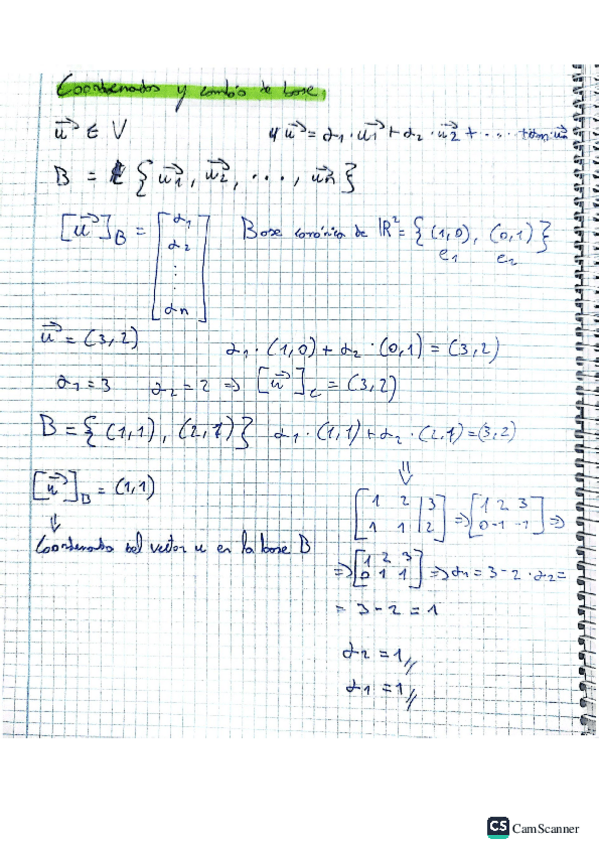 Coordenadas y cambio de base
u⃗ ∈ V y u⃗ = α1 · u⃗1 + α2 · u⃗2 + ... + αn · u⃗n
B = { u⃗1, u⃗2, ..., u⃗n }
[u⃗]B = [α1 α2 ⋮ αn] Base canónica de ℝ² = { (1,0), (0,1) }
e1 e2
u⃗ = (3,2) α1 · (1,0) + α2 · (0,1) = (3,2)
α1 = 3 α2 = 2 ⇒ [u⃗]c = (3,2)
B = { (1,1), (2,1) } α1 · (1,1) + α2 · (2,1) = (3,2)
[u⃗]B = (1,1)
⇓
Coordenadas del vector u en la base B
⇓
[1 2 | 3
1 1 | 2] ⇒ [1 2 3
0 -1 -1] ⇒
⇒ [1 2 3
0 1 1] ⇒ α1 = 3 - 2 · α2 =
= 3 - 2 = 1
α2 = 1 //
α1 = 1 //
CS CamScanner